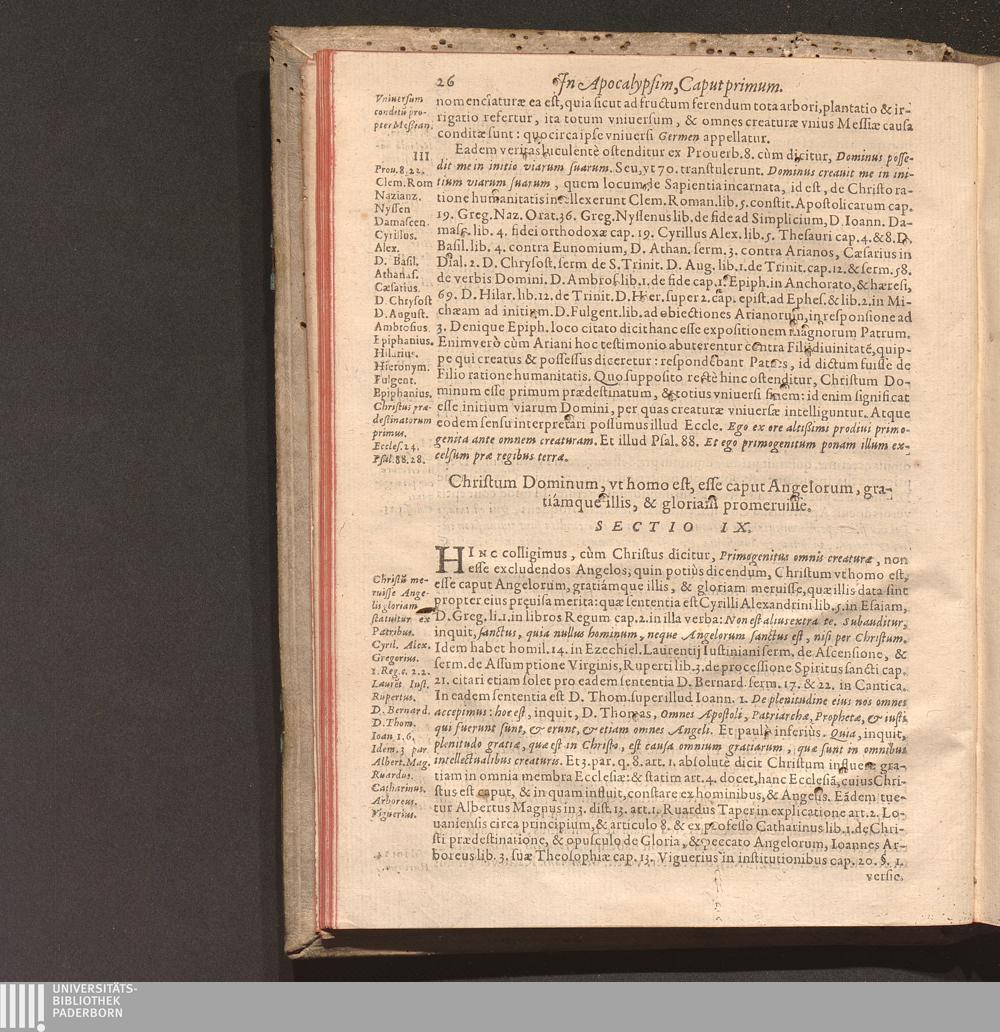 26 In Apocalypsim, Caput primum.
Vniuersum
conditū pro-
pter Messiam.
nomenclaturæ ea est, quia sicut ad fructum ferendum tota arbori, plantatio & ir-
rigatio refertur, ita totum vniuersum, & omnes creaturæ vnius Messiæ causa
conditæ sunt: quocirca ipse vniuersi Germen appellatur.
III
Prou. 8. 22.
Clem. Rom
Nazianz.
Nyssen
Damascen.
Cyrillus.
Alex.
D. Basil.
Athanas.
Cæsarius.
D Chrysost
D. August.
Ambrosius.
Epiphanius.
Hilarius.
Hieronym.
Fulgent.
Epiphanius.
Christus præ-
destinatorum
primus.
Eccles. 24.
Psal. 88. 28.
Eadem veritas luculentè ostenditur ex Prouerb. 8. cùm dicitur, Dominus posse-
dit me in initio viarum suarum. Seu, vt 70. transtulerunt. Dominus creauit me in ini-
tium viarum suarum, quem locum de Sapientia incarnata, id est, de Christo ra-
tione humanitatis intellexerunt Clem. Roman. lib. 5. constit. Apostolicarum cap.
19. Greg. Naz. Orat. 36. Greg. Nyssenus lib. de fide ad Simplicium, D. Ioann. Da-
masc. lib. 4. fidei orthodoxæ cap. 19. Cyrillus Alex. lib. 5. Thesauri cap. 4. & 8. D.
Basil. lib. 4. contra Eunomium, D. Athan. serm. 3. contra Arianos, Cæsarius in
Dial. 2. D. Chrysost. serm de S. Trinit. D. Aug. lib. 1. de Trinit. cap. 12. & serm. 58.
de verbis Domini. D. Ambros. lib. 1. de fide cap. 1. Epiph. in Anchorato, & hæresi,
69. D. Hilar. lib. 12. de Trinit. D. Hier. super 2. cap. epist. ad Ephes. & lib. 2. in Mi-
chæam ad initium. D. Fulgent. lib. ad obiectiones Arianorum, in responsione ad
3. Denique Epiph. loco citato dicit hanc esse expositionem magnorum Patrum.
Enimverò cùm Ariani hoc testimonio abuterentur contra Filij diuinitatē, quip-
pe qui creatus & possessus diceretur: respondebant Patres, id dictum fuisse de
Filio ratione humanitatis. Quo supposito rectè hinc ostenditur, Christum Do-
minum esse primum prædestinatum, & totius vniuersi finem: id enim significat
esse initium viarum Domini, per quas creaturæ vniuersæ intelliguntur. Atque
eodem sensu interpretari possumus illud Eccle. Ego ex ore altissimi prodiui primo-
genita ante omnem creaturam. Et illud Psal. 88. Et ego primogenitum ponam illum ex-
celsum præ regibus terræ.
Christum Dominum, vt homo est, esse caput Angelorum, gra-
tiámque illis, & gloriam promeruisse.
SECTIO IX.
Christū me-
ruisse Ange-
lis gloriam
statuitur ex
Patribus.
Cyril. Alex.
Gregorius.
1. Reg. c. 2. 2.
Laurēt Iust.
Rupertus.
D. Bernard.
D. Thom.
Ioan 1. 6.
Idem. 3 par.
Albert. Mag.
Ruardus.
Catharinus.
Arboreus.
Viguerius.
HINC colligimus, cùm Christus dicitur, Primogenitus omnis creaturæ, non
esse excludendos Angelos, quin potiùs dicendum, Christum vt homo est,
esse caput Angelorum, gratiámque illis, & gloriam meruisse, quæ illis data sint
propter eius preuisa merita: quæ sententia est Cyrilli Alexandrini lib. 5. in Esaiam,
D. Greg. li. 1. in libros Regum cap. 2. in illa verba: Non est alius extra te. Subauditur,
inquit, sanctus, quia nullus hominum, neque Angelorum sanctus est, nisi per Christum.
Idem habet homil. 14. in Ezechiel. Laurentij Iustiniani serm. de Ascensione, &
serm. de Assumptione Virginis, Ruperti lib. 3. de processione Spiritus sancti cap.
21. citari etiam solet pro eadem sententia D. Bernard. serm. 17. & 22. in Cantica.
In eadem sententia est D. Thom. super illud Ioann. 1. De plenitudine eius nos omnes
accepimus: hoc est, inquit, D. Thomas, Omnes Apostoli, Patriarchæ, Prophetæ, & iusti,
qui fuerunt sunt, & erunt, & etiam omnes Angeli. Et paulò inferiùs. Quia, inquit,
plenitudo gratiæ, quæ est in Christo, est causa omnium gratiarum, quæ sunt in omnibus
intellectualibus creaturis. Et 3. par. q. 8. art. 1. absolutè dicit Christum influere gra-
tiam in omnia membra Ecclesiæ: & statim art. 4. docet, hanc Ecclesiā, cuius Chri-
stus est caput, & in quam influit, constare ex hominibus, & Angelis. Eādem tue-
tur Albertus Magnus in 3. dist. 13. art. 1. Ruardus Taper in explicatione art. 2. Lo-
uaniensis circa principium, & articulo 8. & ex professo Catharinus lib. 1. de Chri-
sti prædestinatione, & opusculo de Gloria, & peccato Angelorum, Ioannes Ar-
boreus lib. 3. suæ Theosophiæ cap. 13. Viguerius in institutionibus cap. 20. §. 1.
versic.
UNIVERSITÄTS-
BIBLIOTHEK
PADERBORN